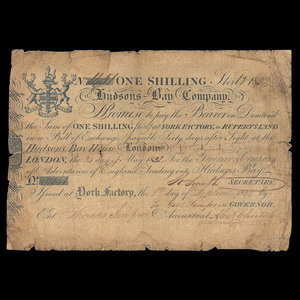 ONE SHILLING Sterlg
Hudsons Bay Company,
Promise to pay the Bearer on Demand
the Sum of ONE SHILLING Sterlg at YORK FACTORY, in RUPERT'S LAND
in a Bill of Exchange payable Sixty days after Sight at the
Hudsons Bay House London
LONDON, the day of May 18 For the Governor & Company
of Adventurers of England trading into Hudsons Bay.
SECRETARY.
Issued at York Factory, the day of 18
Geo. Simpson GOVERNOR,
Entd Thomas Simpson Accountant